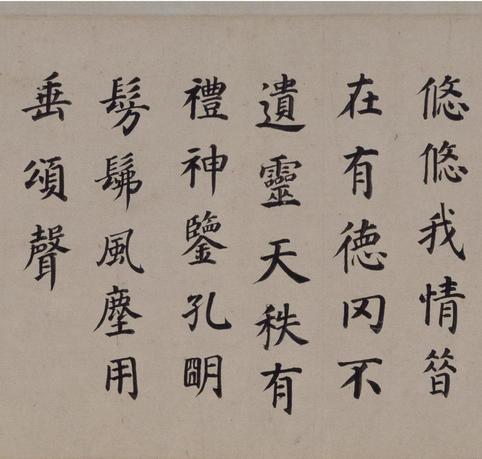 悠悠我情昔
在有徳罔不
遺靈天秩有
禮神鑒孔朙
髣髴風塵用
垂頌聲